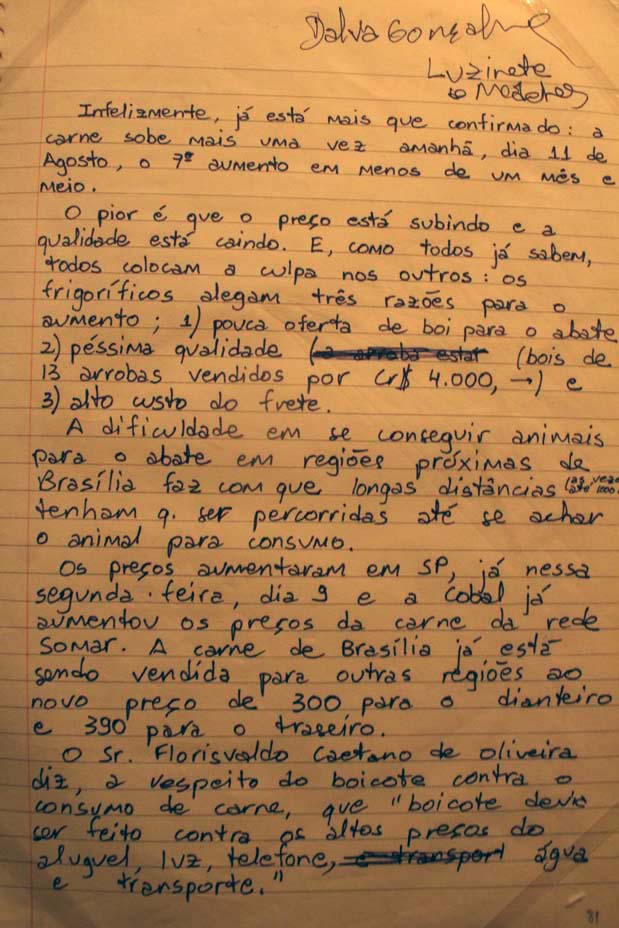 Dalva Gonçalves
Luzinete
Infelizmente, já está mais que confirmado: a
carne sobe mais uma vez amanhã, dia 11 de
Agosto, o 7º aumento em menos de um mês e
meio.
O pior é que o preço está subindo e a
qualidade está caindo. E, como todos já sabem,
todos colocam a culpa nos outros: os
frigoríficos alegam três razões para o
aumento; 1) pouca oferta de boi para o abate
2) péssima qualidade (a arroba estar (bois de
13 arrobas vendidos por Cr$ 4.000, →) e
3) alto custo do frete.
A dificuldade em se conseguir animais
para o abate em regiões próximas de
Brasília faz com que longas distâncias (às vezes até 1000
tenham q. ser percorridas até se achar
o animal para consumo.
Os preços aumentaram em SP, já nessa
segunda-feira, dia 9 e a Cobal já
aumentou os preços da carne da rede
Somar. A carne de Brasília já está
sendo vendida para outras regiões ao
novo preço de 300 para o dianteiro
e 390 para o traseiro.
O Sr. Florisvaldo Caetano de Oliveira
diz, a respeito do boicote contra o
consumo de carne, que "boicote deve
ser feito contra os altos preços do
aluguel, luz, telefone, e transport água
e transporte."
81